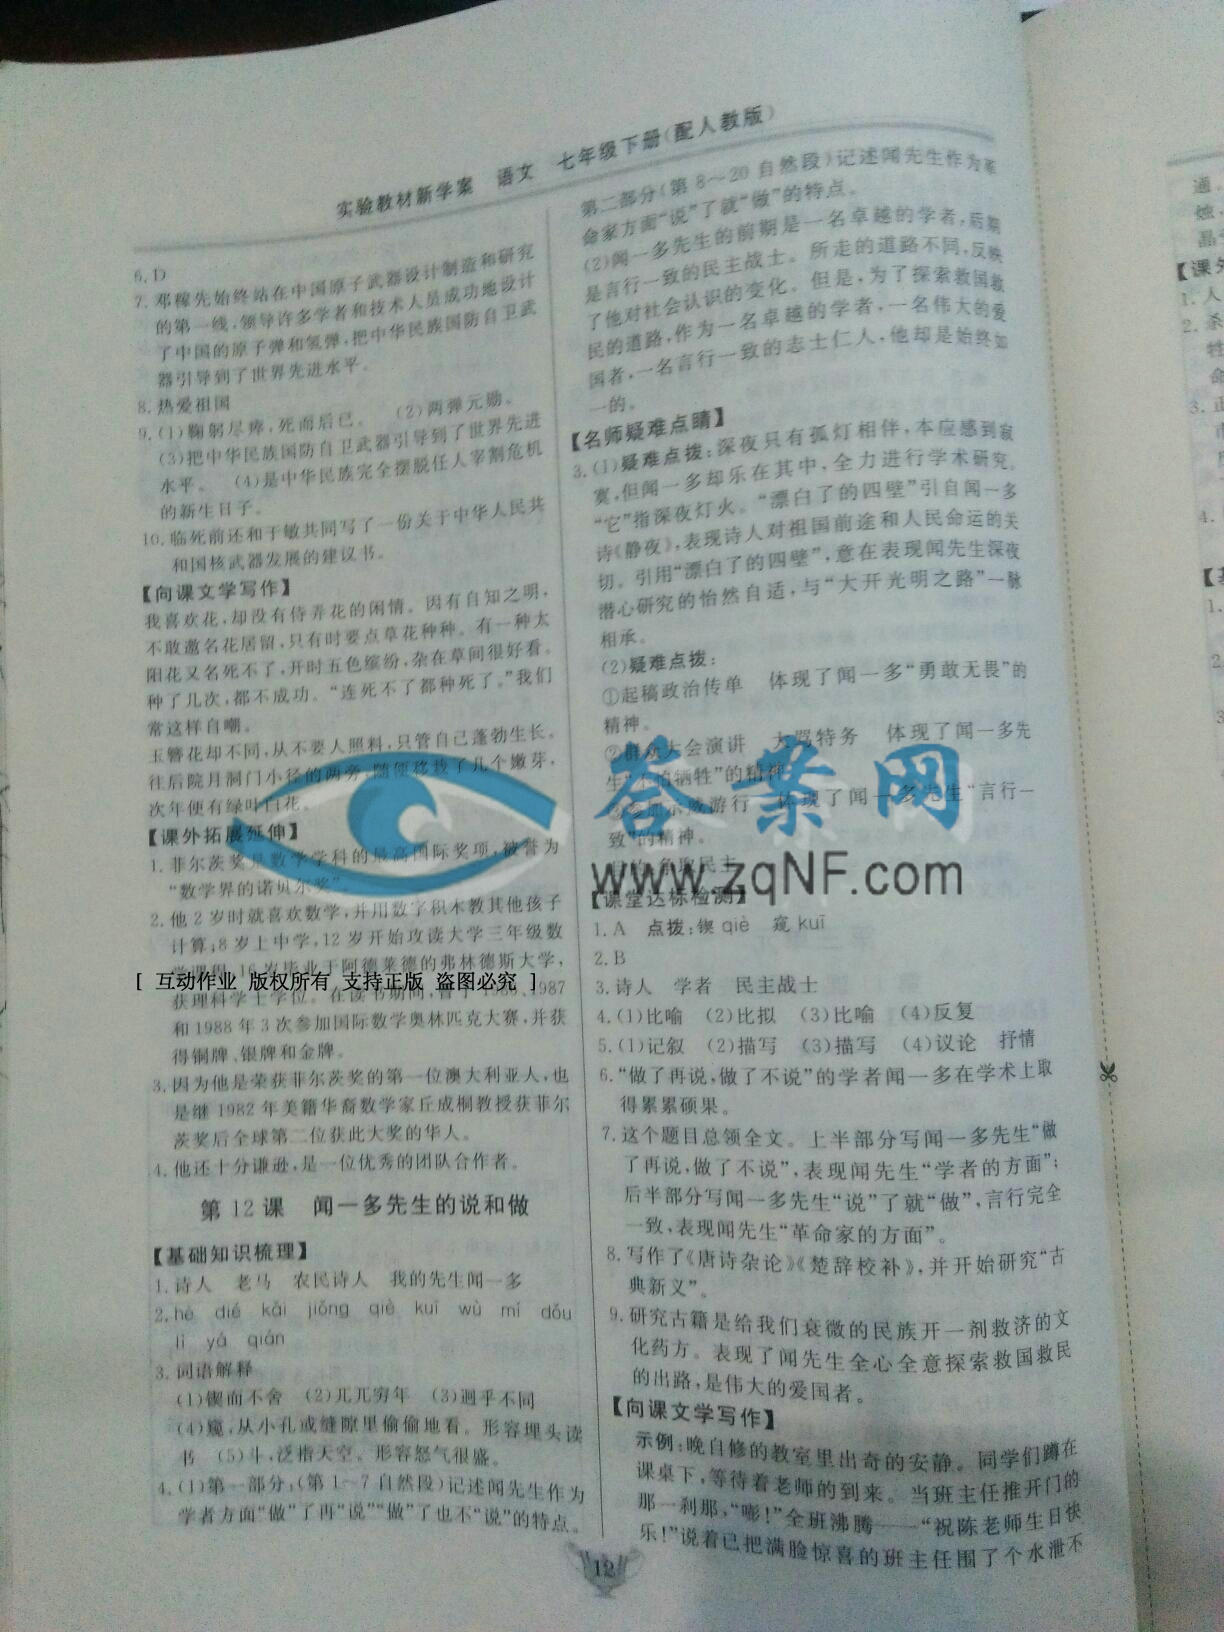 实验教材新学案 语文 七年级下册(配人教版)
6.D
7.邓稼先始终站在中国原子武器设计制造和研究
的第一线,领导许多学者和技术人员成功地设计
了中国的原子弹和氢弹,把中华民族国防自卫武
器引导到了世界先进水平。
8.热爱祖国
9.(1)鞠躬尽瘁,死而后已。 (2)两弹元勋。
(3)把中华民族国防自卫武器引导到了世界先进
水平。 (4)是中华民族完全摆脱任人宰割危机
的新生日子。
10.临死前还和于敏共同写了一份关于中华人民共
和国核武器发展的建议书。
【向课文学写作】
我喜欢花,却没有侍弄花的闲情。因有自知之明,
不敢邀名花居留,只有时要点草花种种。有一种太
阳花又名死不了,开时五色缤纷,杂在草间很好看。
种了几次,都不成功。“连死不了都种死了。”我们
常这样自嘲。
玉簪花却不同,从不要人照料,只管自己蓬勃生长。
往后院月洞门小径的两旁,随便移栽了几个嫩芽,
次年便有绿叶白花。
【课外拓展延伸】
1.菲尔茨奖是数学学科的最高国际奖项,被誉为
“数学界的诺贝尔奖”。
2.他2岁时就喜欢数学,并用数字积木教其他孩子
计算;8岁上中学,12岁开始攻读大学三年级数
16岁毕业于阿德莱德的弗林德斯大学,
[ 互动作业 版权所有 支持正版 盗图必究 ]
获理科学士学位。在读书期间,曾于1986、1987
和1988年3次参加国际数学奥林匹克大赛,并获
得铜牌、银牌和金牌。
3.因为他是荣获菲尔茨奖的第一位澳大利亚人,也
是继1982年美籍华裔数学家丘成桐教授获菲尔
茨奖后全球第二位获此大奖的华人。
4.他还十分谦逊,是一位优秀的团队合作者。
第12课 闻一多先生的说和做
【基础知识梳理】
1.诗人 老马 农民诗人 我的先生闻一多
2.hè dié kǎi jiǒng qiè kuī wù mí dǒu
lì yá qián
3.词语解释
(1)锲而不舍 (2)兀兀穷年 (3)迥乎不同
(4)窥,从小孔或缝隙里偷偷地看。形容埋头读
书 (5)斗,泛指天空。形容怒气很盛。
4.(1)第一部分:(第1~7自然段)记述闻先生作为
学者方面“做”了再“说”“做”了也不“说”的特点。
第二部分(第8~20自然段)记述闻先生作为革
命家方面“说”了就“做”的特点。
(2)闻一多先生的前期是一名卓越的学者,后期
是言行一致的民主战士。所走的道路不同,反映
了他对社会认识的变化。但是,为了探索救国救
民的道路,作为一名卓越的学者,一名伟大的爱
国者,一名言行一致的志士仁人,他却是始终如
一的。
【名师疑难点睛】
3.(1)疑难点拨:深夜只有孤灯相伴,本应感到寂
寞,但闻一多却乐在其中,全力进行学术研究。
“它”指深夜灯火。“漂白了的四壁”引自闻一多
诗《静夜》,表现诗人对祖国前途和人民命运的关
切。引用“漂白了的四壁”,意在表现闻先生深夜
潜心研究的怡然自适,与“大开光明之路”一脉
相承。
(2)疑难点拨:
①起稿政治传单 体现了闻一多“勇敢无畏”的
精神。
②群众大会演讲 大骂特务 体现了闻一多先
生“不怕牺牲”的精神
③参加示威游行 体现了闻一多先生“言行一
致”的精神。
目的:争取民主
答案网
www.zqNF.com
【课堂达标检测】
1.A 点拨:锲qiè 窥kuī
2.B
3.诗人 学者 民主战士
4.(1)比喻 (2)比拟 (3)比喻 (4)反复
5.(1)记叙 (2)描写 (3)描写 (4)议论 抒情
6.“做了再说,做了不说”的学者闻一多在学术上取
得累累硕果。
7.这个题目总领全文。上半部分写闻一多先生“做
了再说,做了不说”,表现闻先生“学者的方面”;
后半部分写闻一多先生“说”了就“做”,言行完全
一致,表现闻先生“革命家的方面”。
8.写作了《唐诗杂论》《楚辞校补》,并开始研究“古
典新义”。
9.研究古籍是给我们衰微的民族开一剂救济的文
化药方。表现了闻先生全心全意探索救国救民
的出路,是伟大的爱国者。
【向课文学写作】
示例:晚自修的教室里出奇的安静。同学们蹲在
课桌下,等待着老师的到来。当班主任推开门的
那一刹那,“嘭!”全班沸腾——“祝陈老师生日快
乐!”说着已把满脸惊喜的班主任围了个水泄不
12
通,
烛,
晶
【课外
1.人
2.杀
牲
命
3.正
4.
【基
1.
2.
3